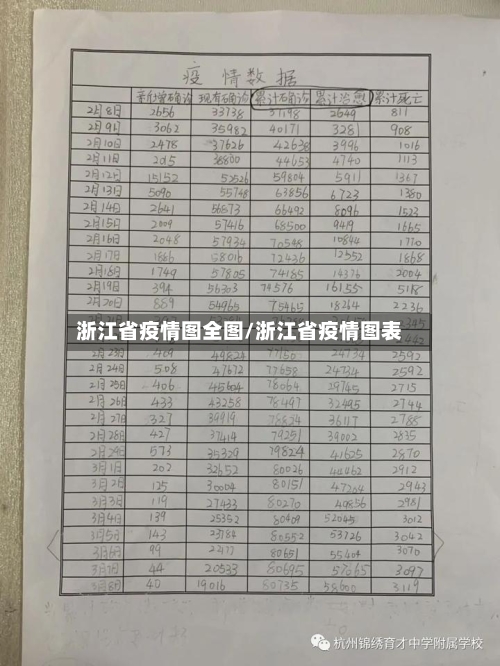 疫情数据
新增确诊 现有确诊 累计确诊 累计治愈 累计死亡
2月8日 2656 33738 37198 2649 811
2月9日 3062 35982 40171 3281 908
2月10日 2478 37626 42638 3996 1016
2月11日 2015 38800 44653 4740 1113
2月12日 15152 52526 59804 5911 1367
2月13日 5090 55748 63856 6723 1380
2月14日 2641 56573 66492 8096 1523
2月15日 2009 57416 68500 9419 1665
2月16日 2048 57934 70548 10844 1770
2月17日 1886 58016 72436 12552 1868
2月18日 1749 57805 74185 14376 2004
2月19日 394 56303 74576 16155 5188
2月20日 889 54965 75465 18264 2236
浙江省疫情图全图/浙江省疫情图表
2月23日 409 49824 77150 24734 2592
2月24日 508 47672 77658 24734 2592
2月25日 406 45604 78064 29745 2715
2月26日 433 43258 78497 32495 2744
2月27日 327 39919 78824 36117 2788
2月28日 427 37414 79251 39002 2835
2月29日 573 35329 79824 41625 2870
3月1日 202 32652 80026 44462 2912
3月2日 125 30004 80151 47204 2943
3月3日 119 27433 80270 2981
3月4日 139 25352 80409 52045 3012
3月5日 143 23784 80552 53726 3042
3月6日 99 80651 55404 3070
3月7日 44 20533 80695 57065 3097
3月8日 40 19016 80735 58600 3119
杭州锦绣育才中学附属学校